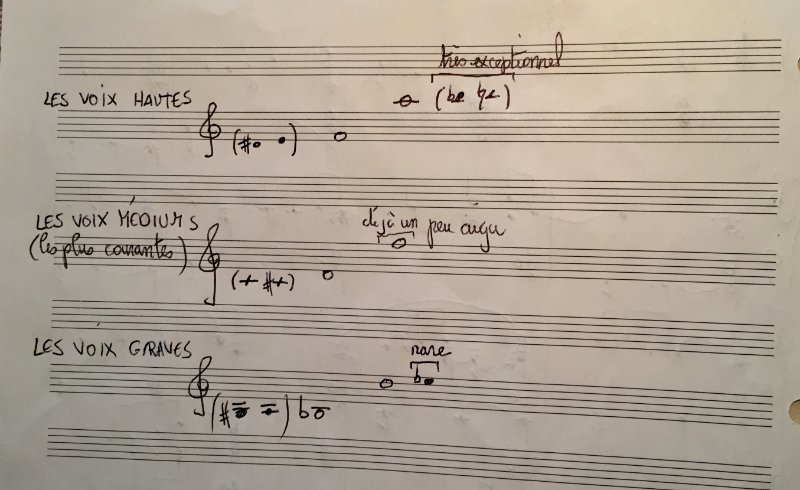 très exceptionnel
LES VOIX HAUTES
LES VOIX MÉDIUMS
déjà un peu aigu
(les plus courantes)
LES VOIX GRAVES
rare